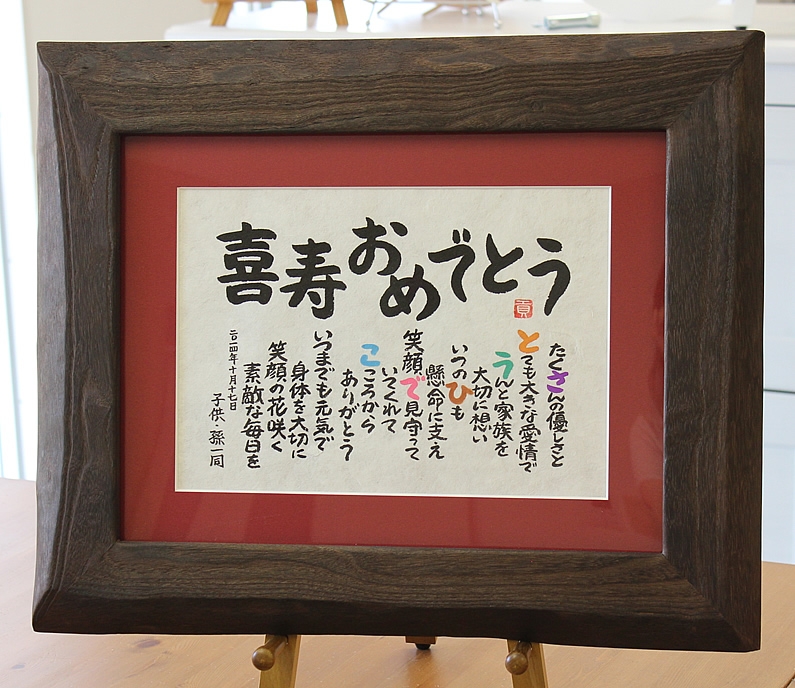 喜寿おめでとう
貢
たくさんの優しさと
とても大きな愛情で
うんと家族を
大切に想い
いつのひも
懸命に支え
笑顔で見守って
いてくれて
こころから
ありがとう
いつまでも元気で
身体を大切に
笑顔の花咲く
素敵な毎日を
二〇一四年十月十七日
子供・孫一同